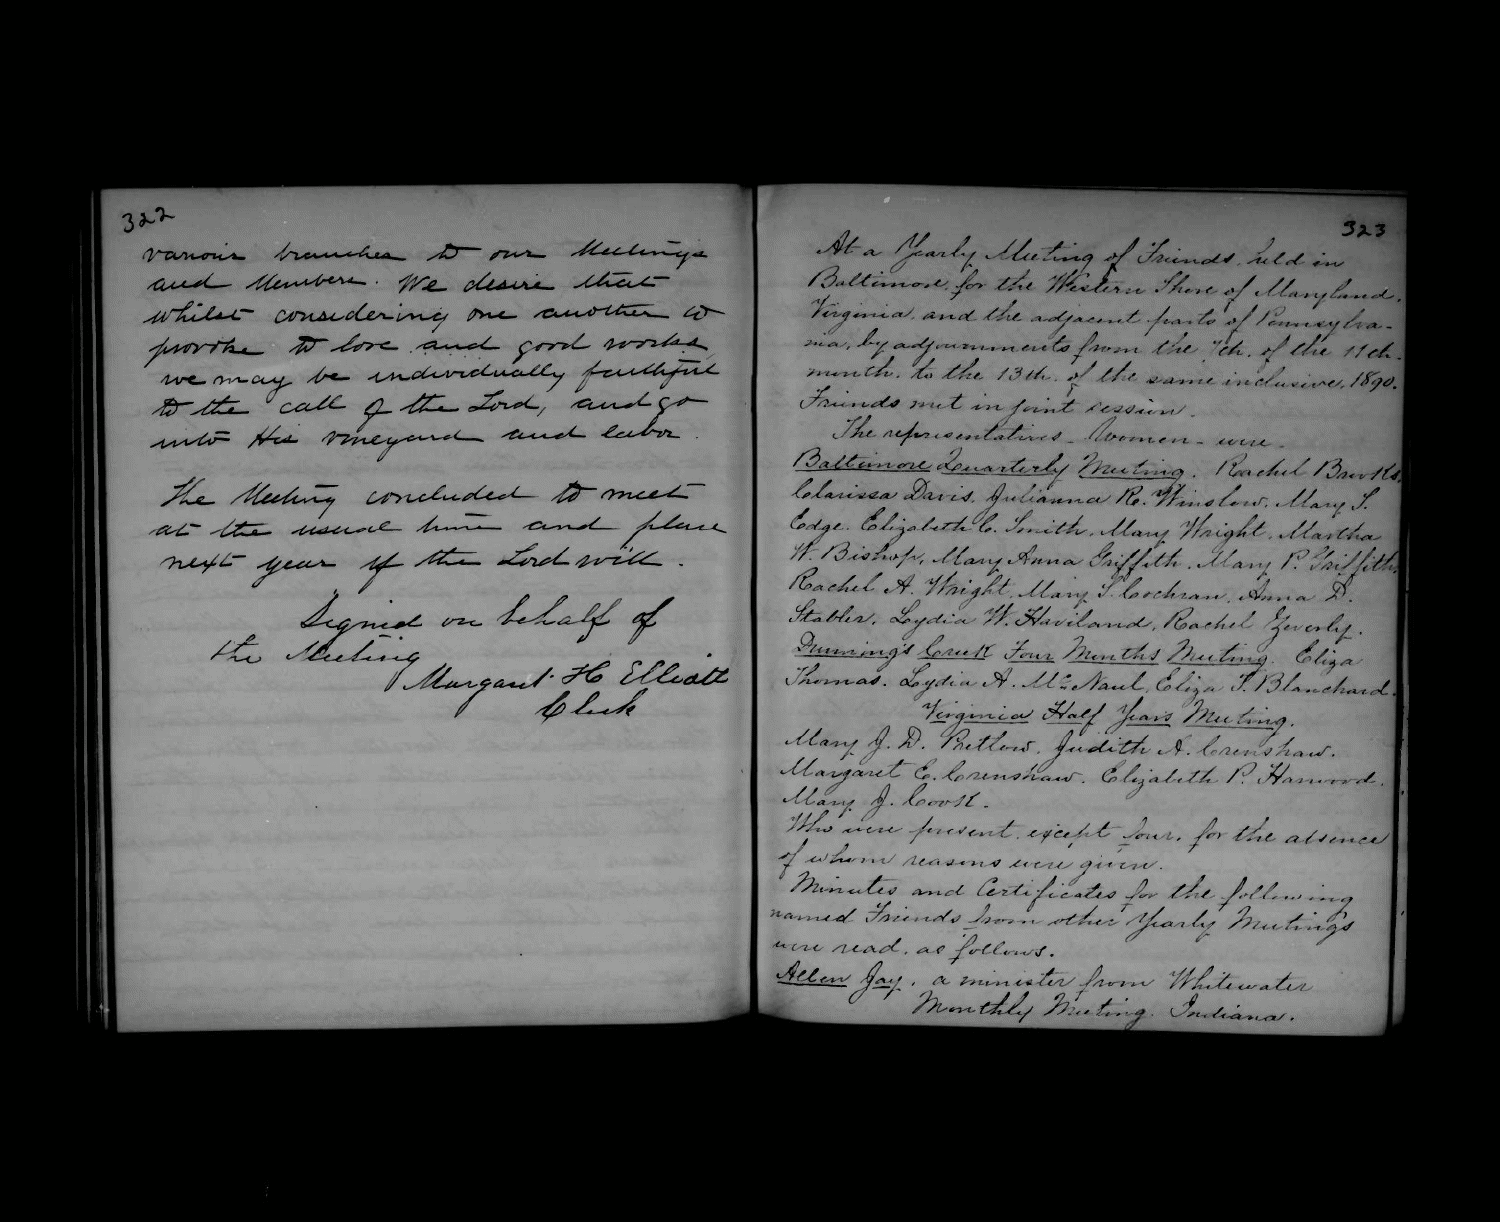 322
various branches to our Meetings
and Members. We desire that
whilst considering one another to
provoke to love and good works,
we may be individually faithful
to the call of the Lord, and go
into His vineyard and labor.
The Meeting concluded to meet
at the usual time and place
next year if the Lord will.
Signed on behalf of
the Meeting
Margaret H Elliott
Clerk
323
At a Yearly Meeting of Friends, held in
Baltimore, for the Western Shore of Maryland,
Virginia, and the adjacent parts of Pennsylva-
nia, by adjournments from the 7th. of the 11th.
month, to the 13th. of the same inclusive, 1890.
Friends met in joint session.
The representatives - Women - were -
Baltimore Quarterly Meeting. Rachel Brooks,
Clarissa Davis, Julianna R. Winslow, Mary S.
Edge, Elizabeth C. Smith, Mary Wright, Martha
W. Bishop, Mary Anna Griffith, Mary P. Griffith,
Rachel A. Wright, Mary S. Cochran, Anna D.
Stabler, Lydia W. Haviland, Rachel Yeverly.
Dunning's Creek Four Months Meeting. Eliza
Thomas, Lydia A. McNaul, Eliza T. Blanchard.
Virginia Half Years Meeting.
Mary J. D. Pretlow, Judith A. Crenshaw,
Margaret E. Crenshaw, Elizabeth P. Harwood,
Mary J. Cook.
Who were present, except four, for the absence
of whom reasons were given.
Minutes and Certificates for the following
named Friends from other Yearly Meetings
were read, as follows.
Allen Jay, a minister from Whitewater
Monthly Meeting, Indiana.